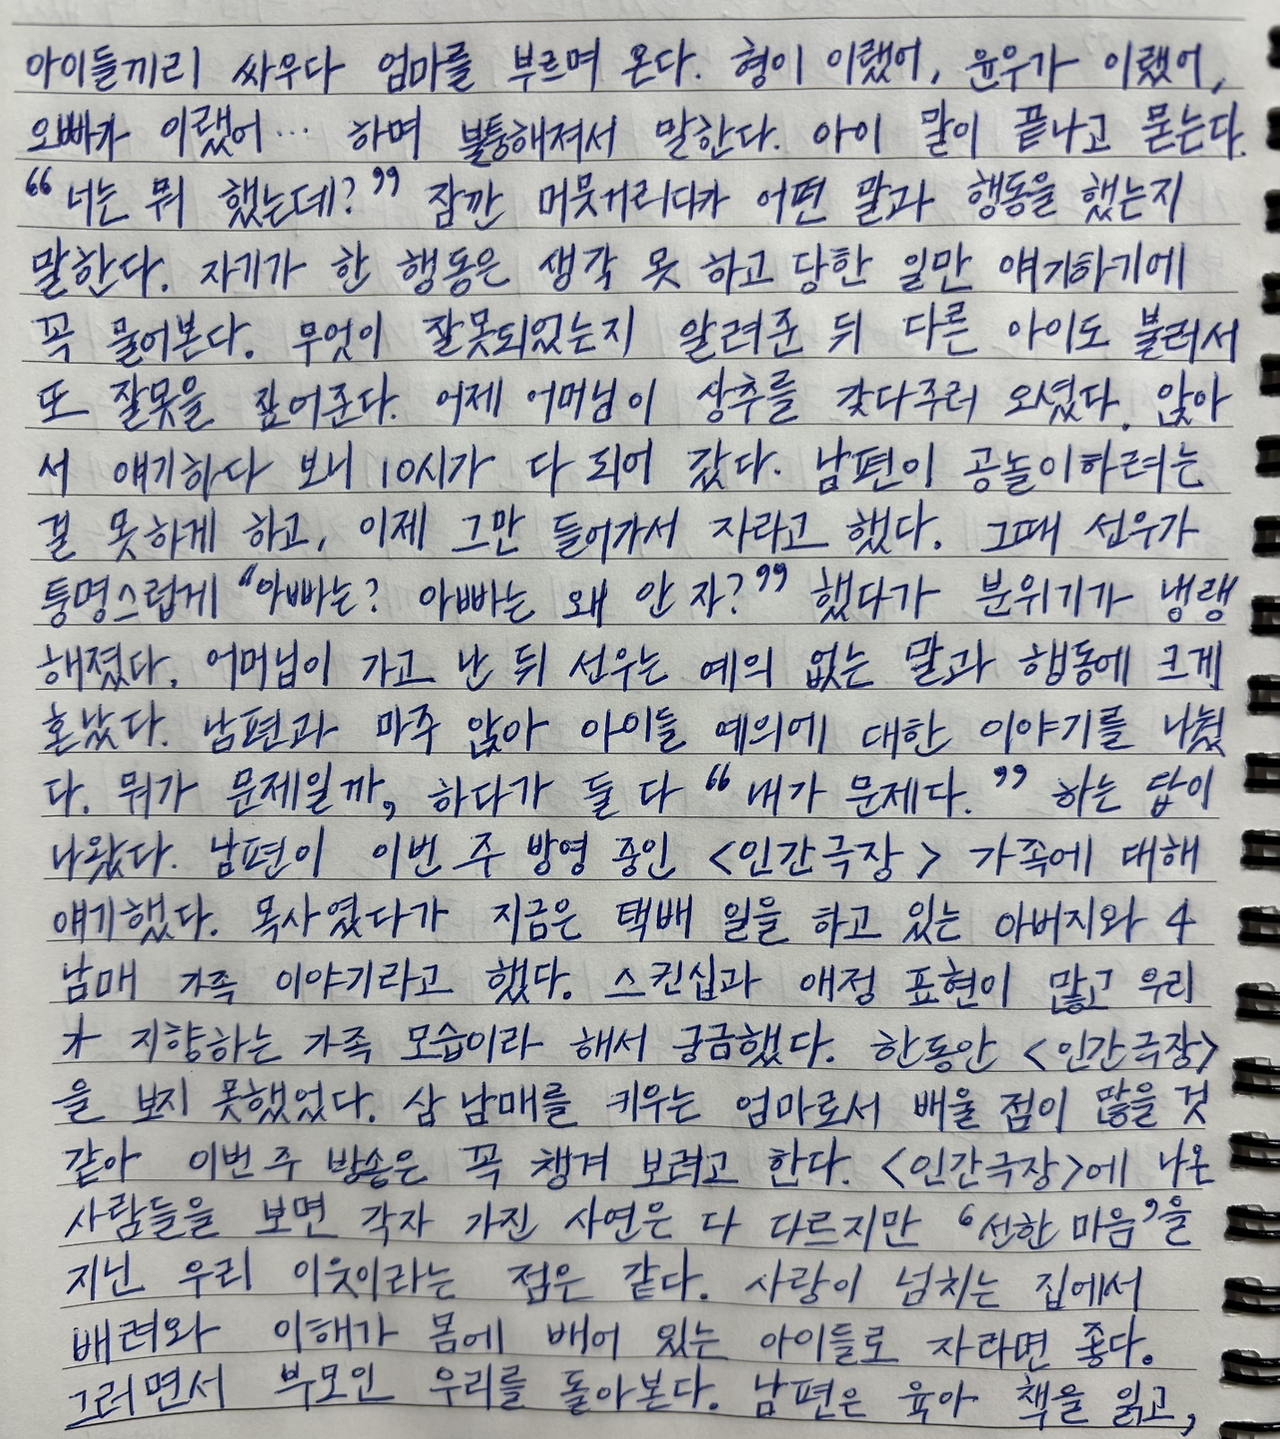 아이들끼리 싸우다 엄마를 부르며 온다. 형이 이랬어, 윤우가 이랬어,
오빠가 이랬어… 하며 불통해져서 말한다. 아이 말이 끝나고 묻는다.
“너는 뭐 했는데?” 잠깐 머뭇거리다가 어떤 말과 행동을 했는지
말한다. 자기가 한 행동은 생각 못 하고 당한 일만 얘기하기에
꼭 물어본다. 무엇이 잘못되었는지 알려준 뒤 다른 아이도 불러서
또 잘못을 짚어준다. 어제 어머님이 상추를 갖다주러 오셨다. 앉아
서 얘기하다 보니 10시가 다 되어 갔다. 남편이 공놀이하려는
걸 못하게 하고, 이제 그만 들어가서 자라고 했다. 그때 선우가
퉁명스럽게 “아빠는? 아빠는 왜 안 자?” 했다가 분위기가 냉랭
해졌다. 어머님이 가고 난 뒤 선우는 예의 없는 말과 행동에 크게
혼났다. 남편과 마주 앉아 아이들 예의에 대한 이야기를 나눴
다. 뭐가 문제일까, 하다가 둘 다 “내가 문제다.” 하는 답이
나왔다. 남편이 이번 주 방영 중인 <인간극장> 가족에 대해
얘기했다. 목사였다가 지금은 택배 일을 하고 있는 아버지와 4
남매 가족 이야기라고 했다. 스킨십과 애정 표현이 많고 우리
가 지향하는 가족 모습이라 해서 궁금했다. 한동안 <인간극장>
을 보지 못했었다. 삼 남매를 키우는 엄마로서 배울 점이 많을 것
같아 이번 주 방송은 꼭 챙겨 보려고 한다. <인간극장>에 나온
사람들을 보면 각자 가진 사연은 다 다르지만 ‘선한 마음’을
지닌 우리 이웃이라는 점은 같다. 사랑이 넘치는 집에서
배려와 이해가 몸에 배어 있는 아이들로 자라면 좋다.
그러면서 부모인 우리를 돌아본다. 남편은 육아 책을 읽고,